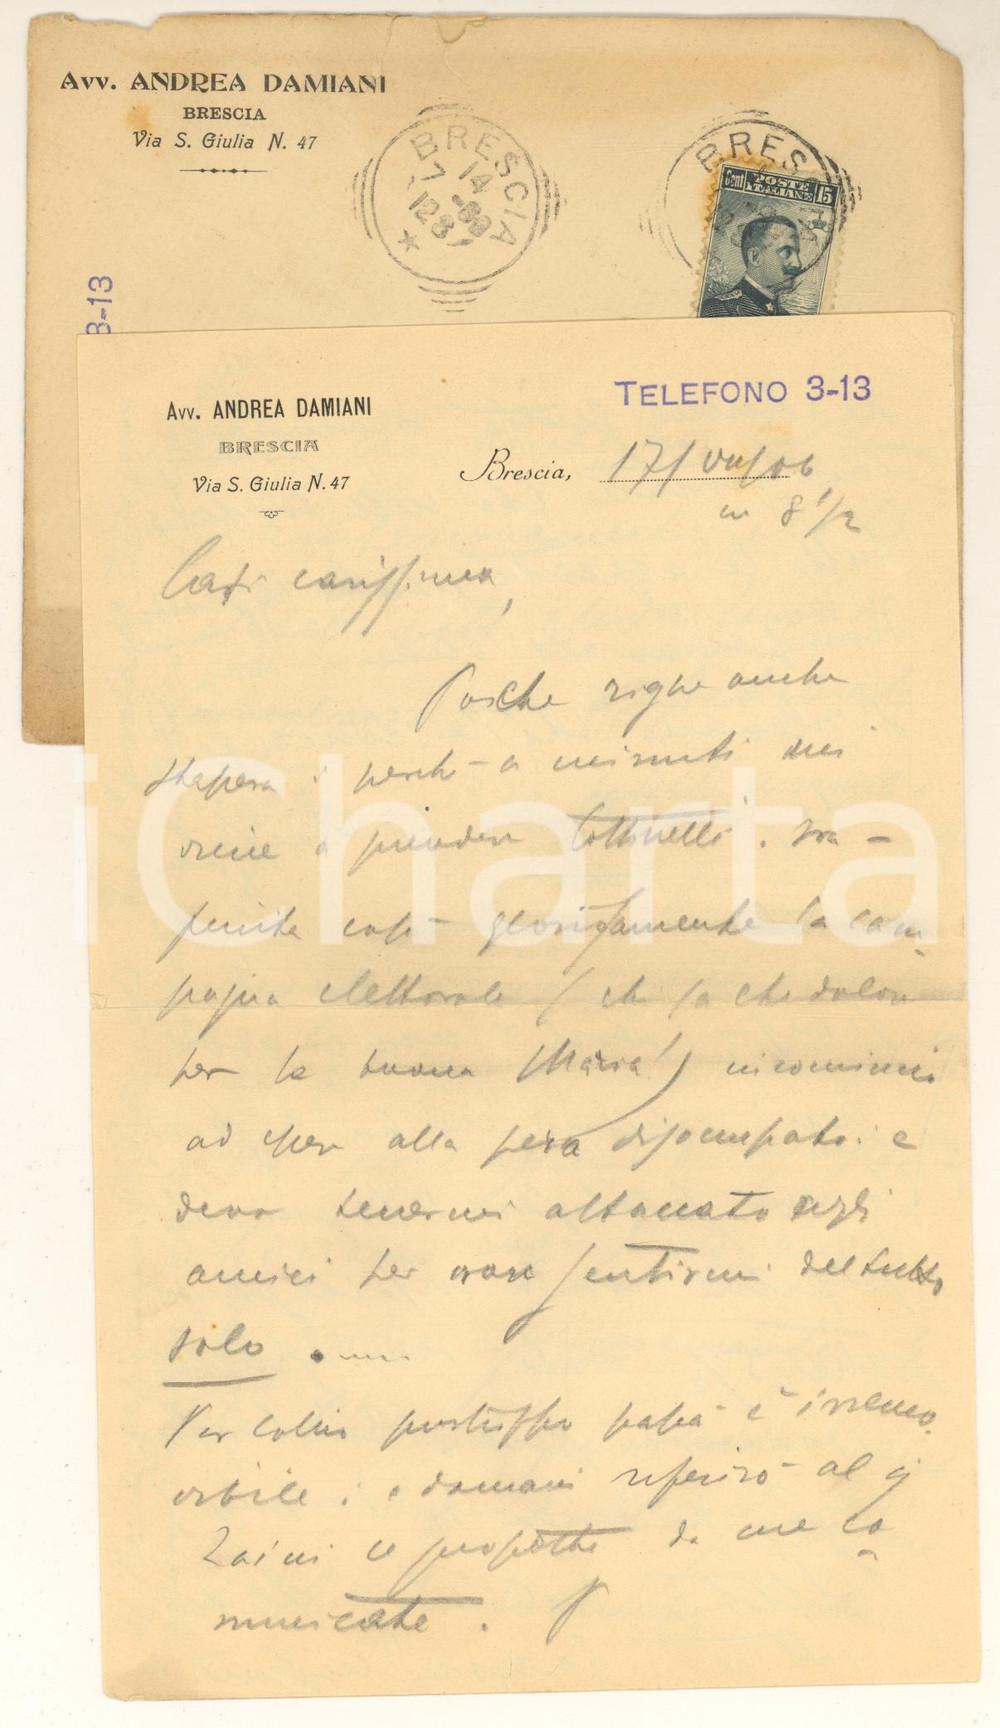 Avv. ANDREA DAMIANI
BRESCIA
Via S. Giulia N. 47
BRESCIA
14
7
12
BRESCIA
Cent POSTE ITALIANE 15
3-13
Avv. ANDREA DAMIANI
BRESCIA
Via S. Giulia N. 47
TELEFONO 3-13
Brescia, 17/VII/06
8 1/2
carissima,
Poche righe anche
stasera: perché a minuti mi
viene a prendere
finita così gloriosamente la cam-
pagna elettorale (che
per la buona Maria!) incomincio
ad esser alla sera disoccupato: e
devo tenermi attaccato agli
amici per non sentirmi del tutto
solo .....
papà è irremo-
vibile: e domani riferirò al
Zaini le proposte da me co-
municate.
iCharta